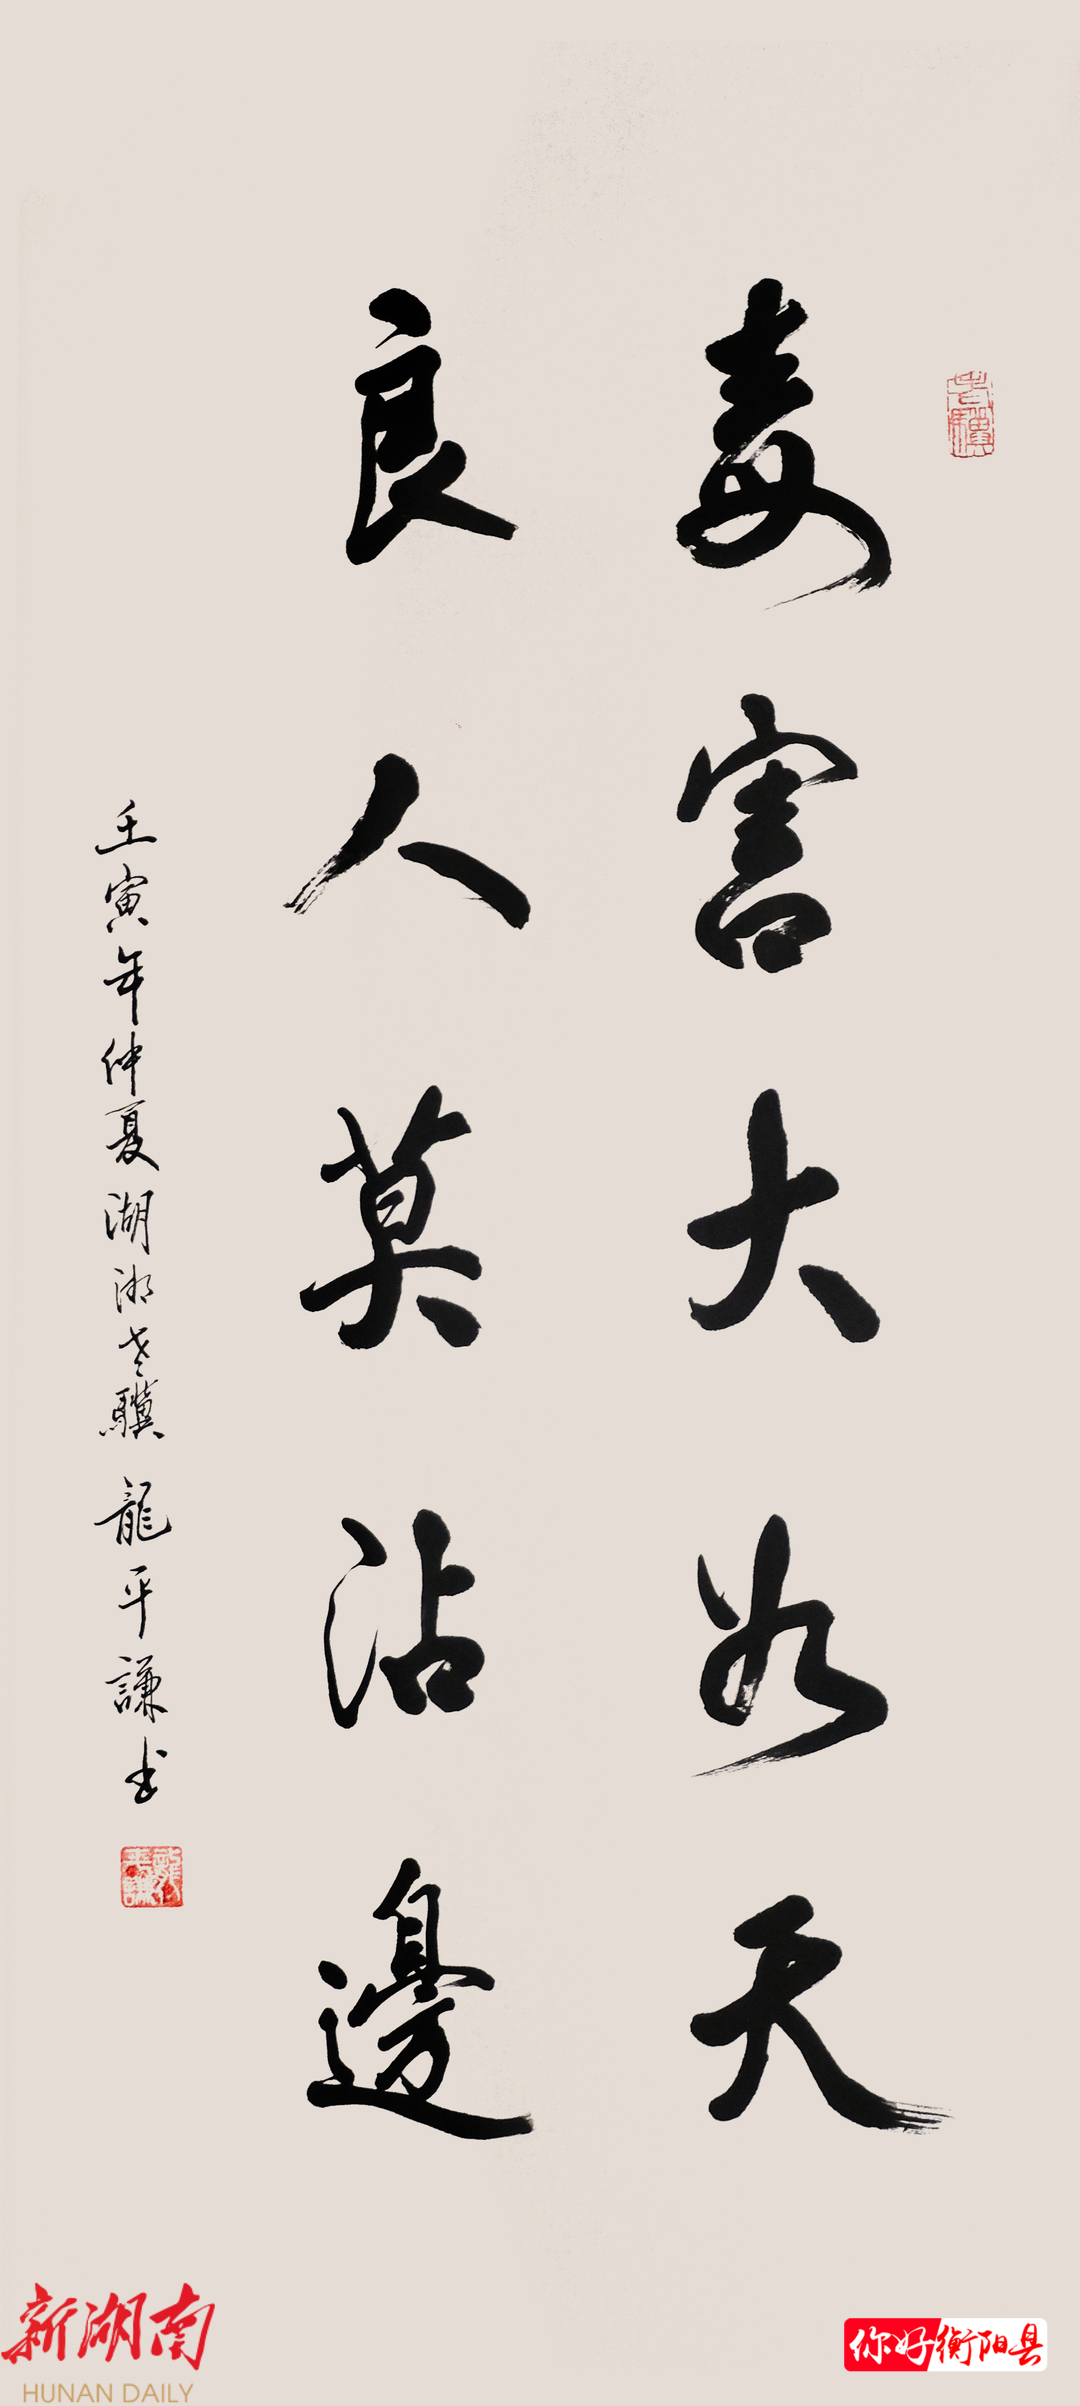 毒害大如天
良人莫沾邊
壬寅年仲夏湖湘老驥 龍平謙書
老驥
新湖南
HUNAN DAILY
你好衡阳县